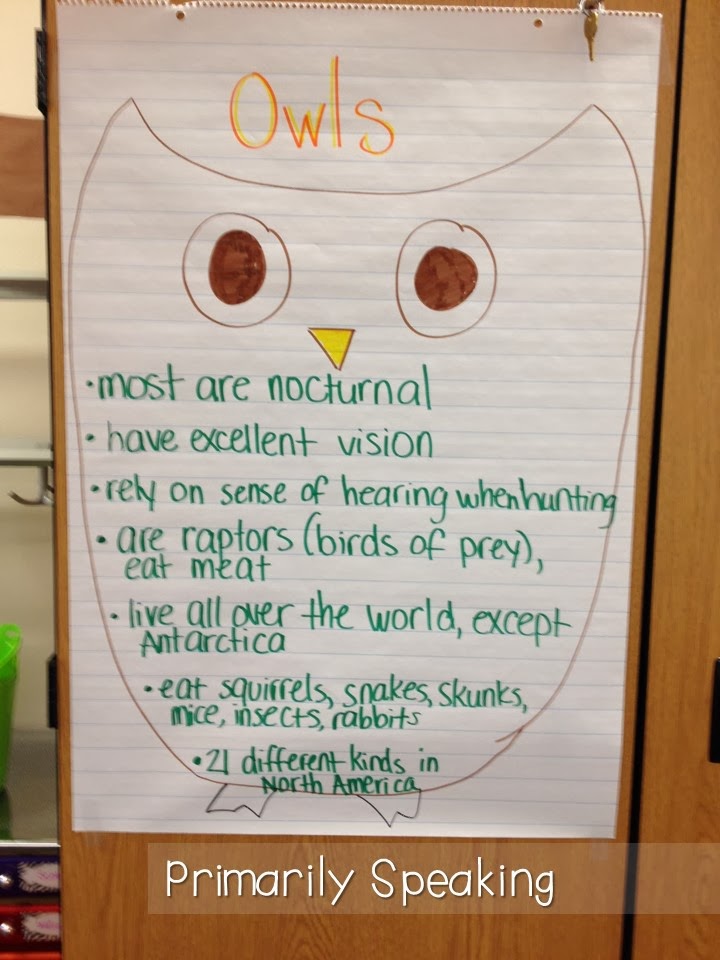 Owls
•most are nocturnal
•have excellent vision
•rely on sense of hearing when hunting
•are raptors (birds of prey),
eat meat
•live all over the world, except
Antarctica
•eat squirrels, snakes, skunks,
mice, insects, rabbits
•21 different kinds in
North America
Primarily Speaking